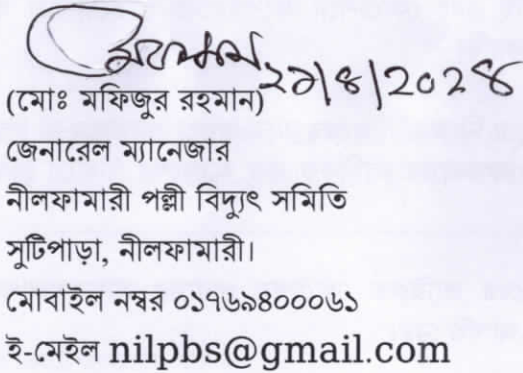 ২১/৪/২০২৪
(মোঃ মফিজুর রহমান)
জেনারেল ম্যানেজার
নীলফামারী পল্লী বিদ্যুৎ সমিতি
সুটিপাড়া, নীলফামারী।
মোবাইল নম্বর ০১৭৬৯৪০০০৬১
ই-মেইল nilpbs@gmail.com